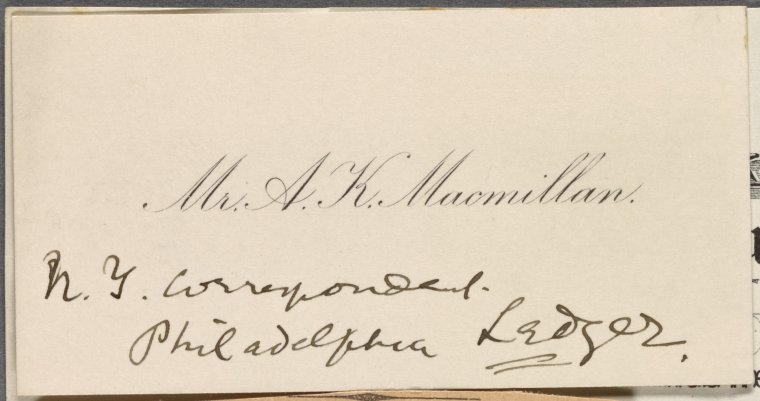 Mr. A. K. Macmillan.
N. Y. Correspondent.
Philadelphia Ledger.